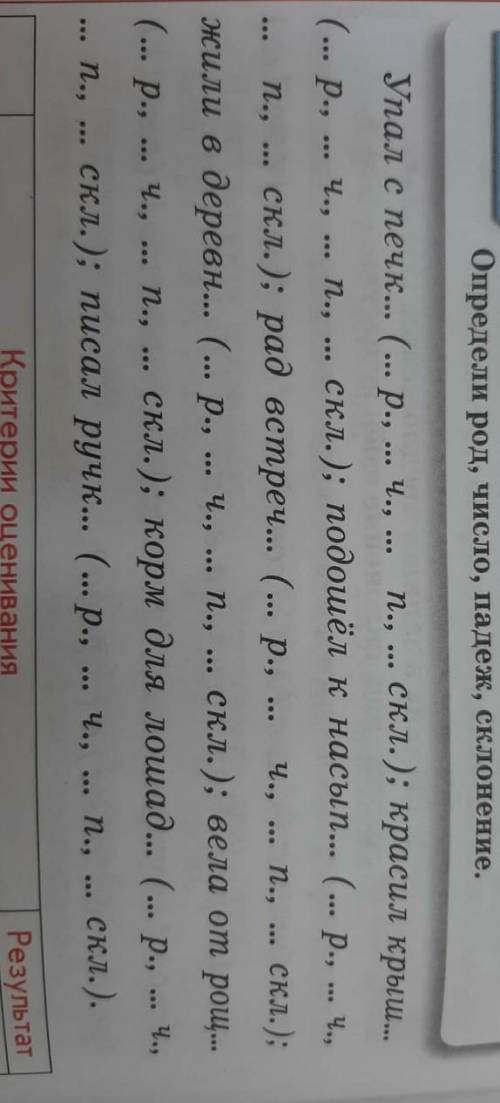 Определи род, число, падеж, склонение.
Упал с печк... (... р., ... ч., ... п., ... скл.); красил крыш...
(... р., ... ч., ... п., ... скл.); подошёл к насып... (... р., ... ч.,
... п., ... скл.); рад встреч... (... р., ... ч., ... п., ... скл.);
жили в деревн... (... р., ... ч., ... п., ... скл.); вела от рощ...
(... р., ... ч., ... п., ... скл.); корм для лошад... (... р., ... ч.,
... п., ... скл.); писал ручк... (... р., ... ч., ... п., ... скл.).
Критерии оценивания
Результат